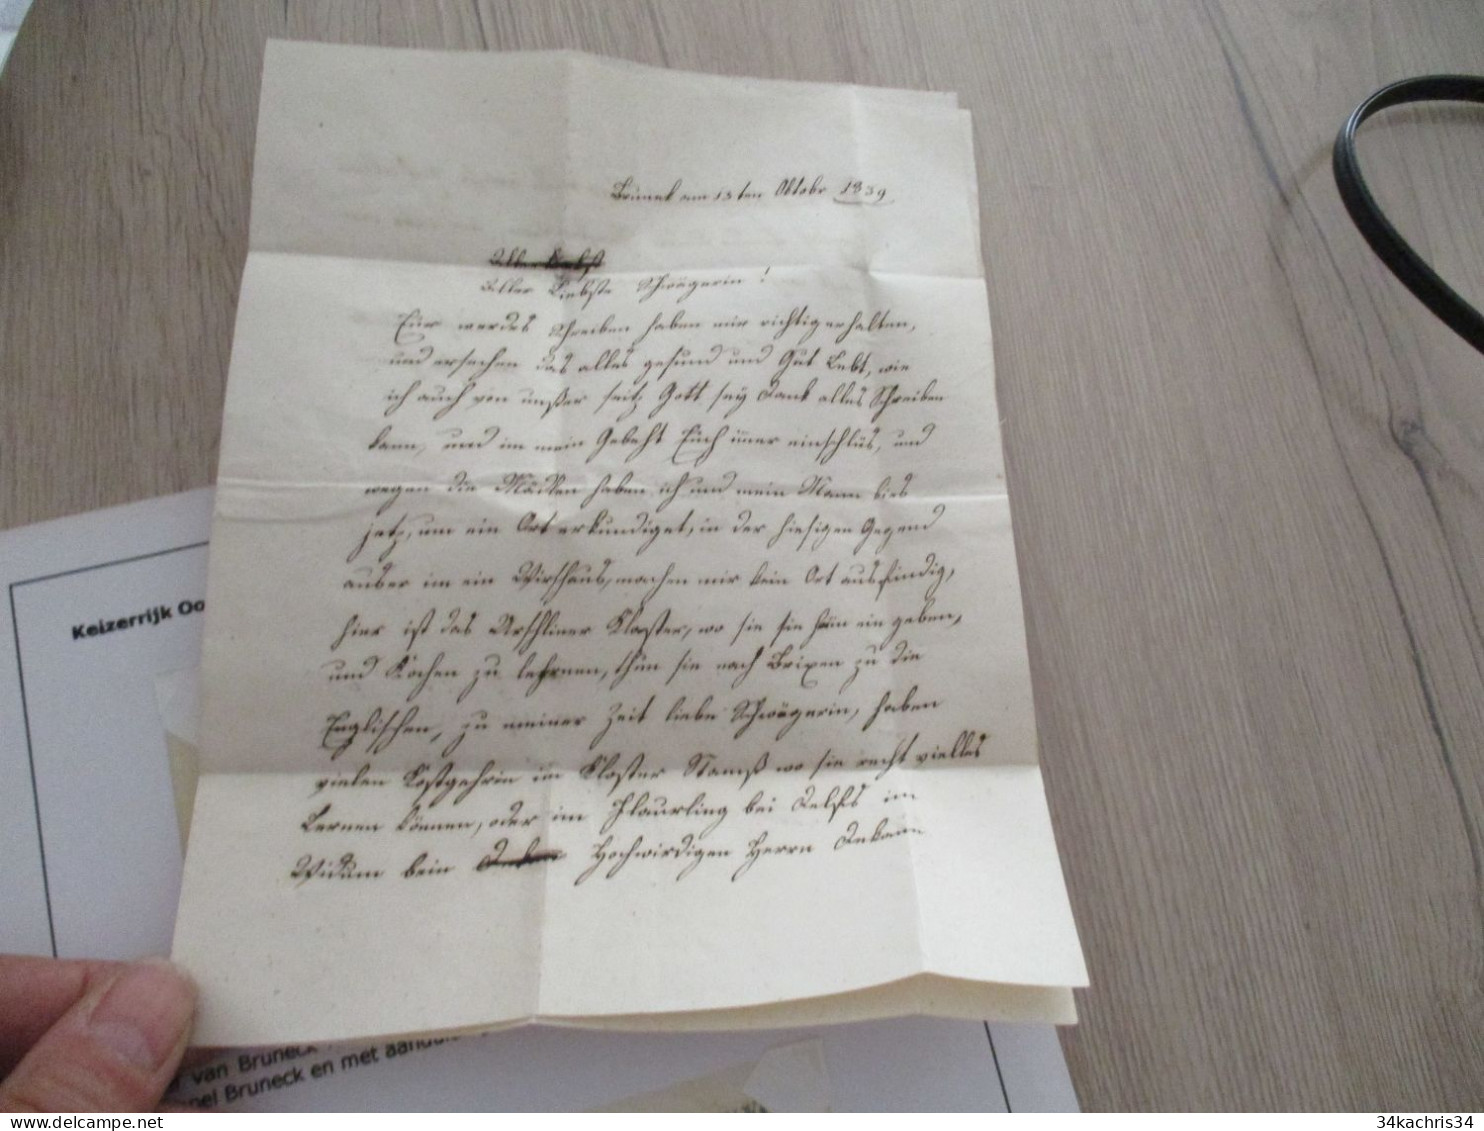 Brüneck am 13ten Oktobr 1839
Aller Liebst
Aller Liebste Schwägerin!
Eüer werdes Schreiben haben mir richtig erhalten,
und ersechen das alles gesund und Gut Lebt, wie
ich auch von unßer seitz Gott sey Dank alles Schreiben
kann, und im mein Gebeht Eüch immer einschlüs, und
wegen die Mädlen haben ich und mein Mann bies
jetz, um ein Ort erkundiget, in der hiesigen Gegend
auber im ein Wirthaus, machen mir kein Ort ausfindig,
hier ist das Urschliner Kloster, wo sie sie hin ein geben,
und Kochen zu lehrnen, thün sie nach Brixen zu die
Englischen, zu meiner Zeit liebe Schwägerin, haben
vielen Kostgehrin im Kloster Stamß wo sie recht vielles
Lernen können, oder im Flaurling bei Delfs im
Widum bein Hochwirdigen Herrn Dekann
Keizerrijk Oo
van Bruneck
pel Bruneck en met aandui
34kachris34